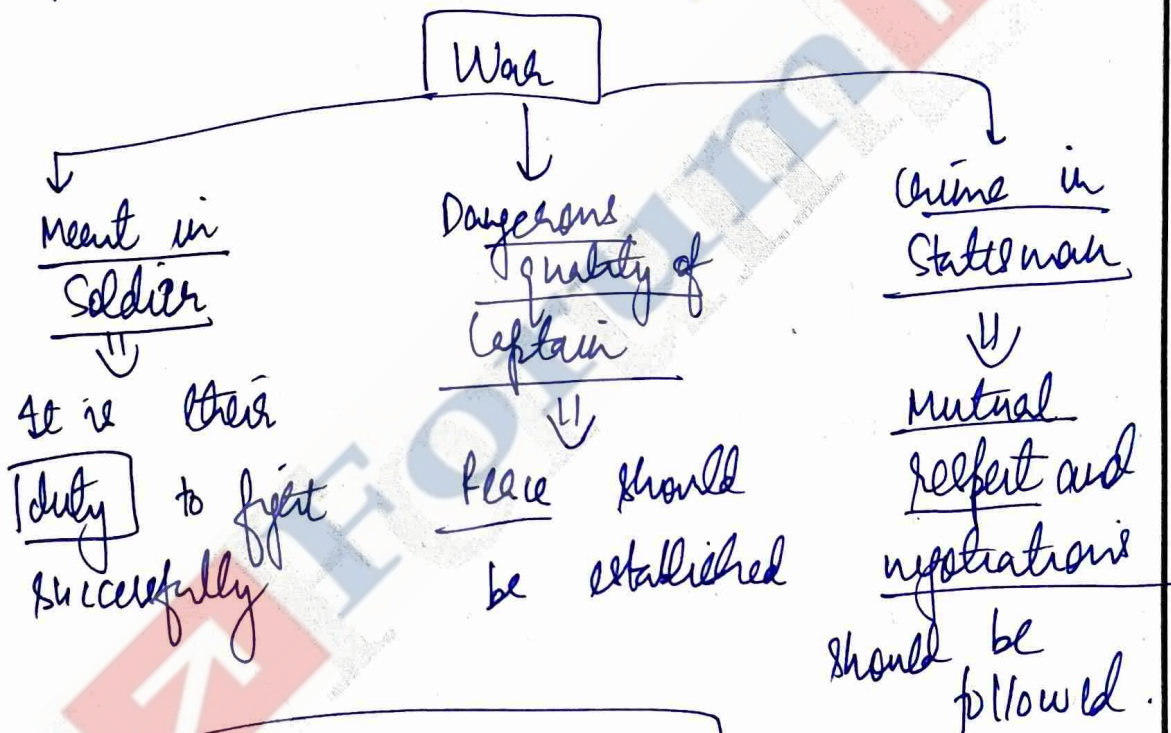 War
Merit in
Soldier
It is their
duty to fight
successfully
Dangerous
quality of
Captain
Peace should
be established
Crime in
Statesman
Mutual
respect and
negotiations
should be
followed.
Forum